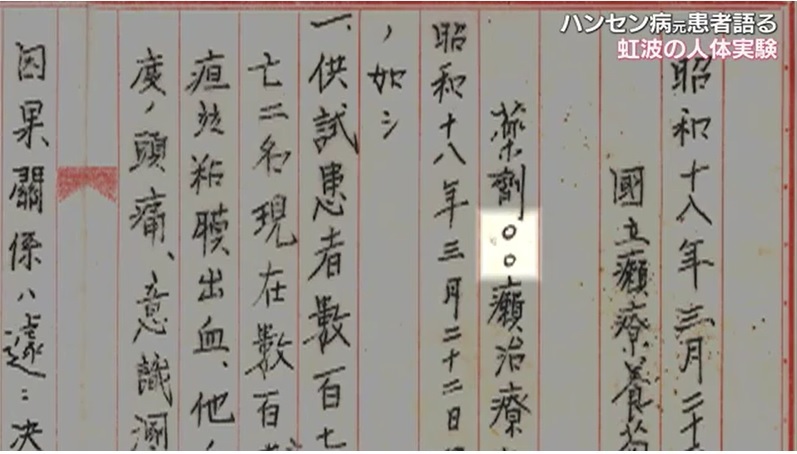 ハンセン病元患者語る
虹波の人体実験
昭和十八年三月二十
國立癩療養
藥劑○○癩治療
昭和十八年三月二十二日
ノ如シ
一、供試患者數百七
亡二名現在數百
疸竝粘膜出血、他ノ
度ノ頭痛、意識溷
因果關係ハ遽ニ決